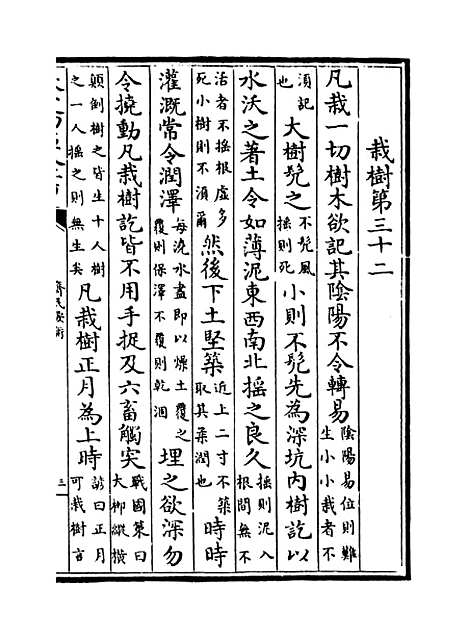 栽樹第三十二
凡栽一切樹木欲記其陰陽不令轉易陰陽易位則難生小小栽者不
須記也大樹髠之不髠風搖則死小則不髠先為深坑内樹訖以
水沃之著土令如薄泥東西南北搖之良久搖則泥入根間無不
活者不搖根虛多死小樹則不須爾然後下土堅築近上二寸不築取其柔潤也時時
灌溉常令潤澤每澆水盡即以燥土覆之覆則保澤不覆則乾涸埋之欲深勿
令撓動凡栽樹訖皆不用手捉及六畜觸突戰國策曰大柳縱橫
顛倒樹之皆生十人樹之一人搖之則無生矣凡栽樹正月為上時諺曰正月可栽樹言
齊民要術